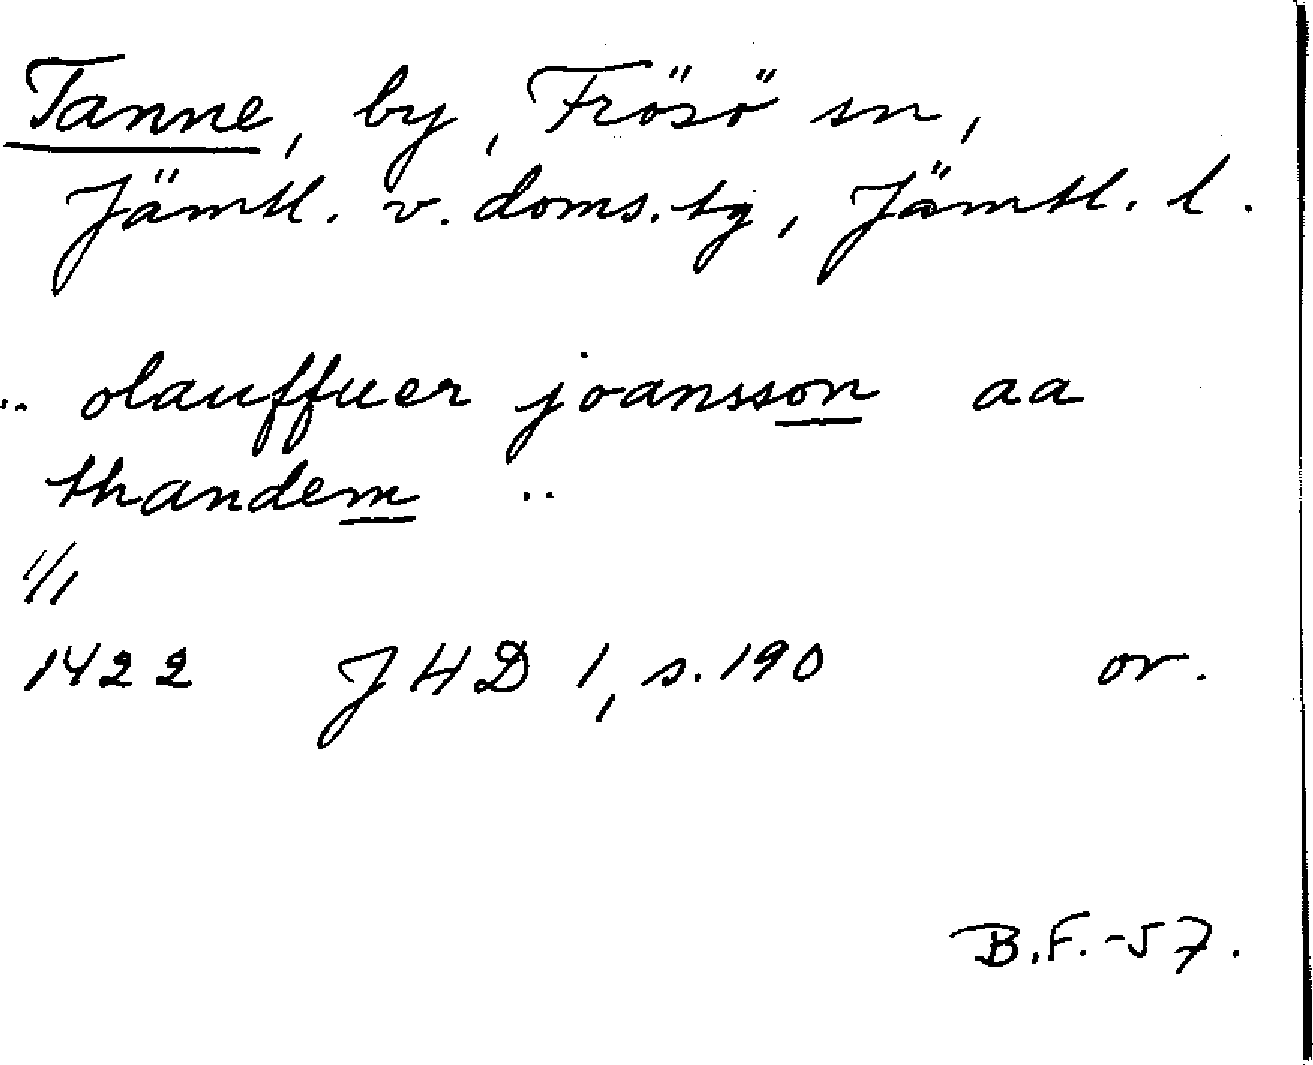 Tanne, by, Frösö sn,
Jämtl. v. doms.tg, Jämtl. l.
.. olauffuer joansson aa
thandem ..
1/1
1422 JHD 1, s.190 or.
B.F.-57.